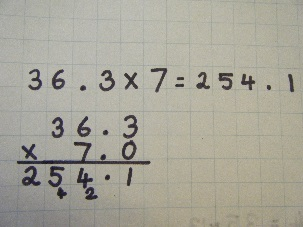 36.3 x 7 = 254.1
36.3
x 7.0
254.1
4 2